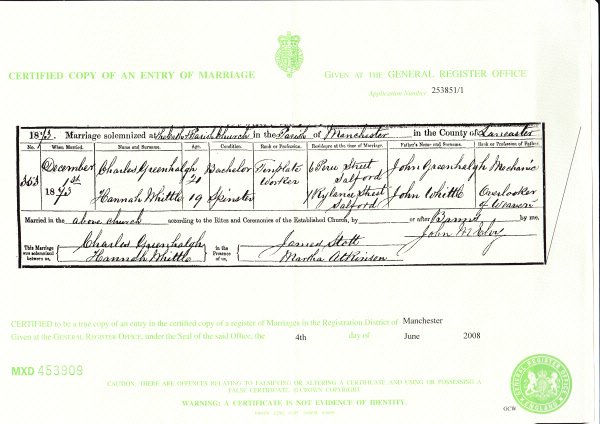 CERTIFIED COPY OF AN ENTRY OF MARRIAGE
GIVEN AT THE GENERAL REGISTER OFFICE
Application Number 253851/1
1873. Marriage solemnized at Parish Church in the Parish of Manchester in the County of Lancaster
No. When Married. Name and Surname. Age. Condition. Rank or Profession. Residence at the time of Marriage. Father's Name and Surname. Rank or Profession of Father.
353 December 1st 1873 Charles Greenhalgh 21 Bachelor Worker Street Salford John Greenhalgh Mechanic
Hannah Whittle 19 Spinster Street Salford John Whittle Overlooker of
Married in the above church according to the Rites and Ceremonies of the Established Church, by or after Banns by me,
John
This Marriage was solemnized between us, Charles Greenhalgh Hannah Whittle in the Presence of us, James Stott Martha Atkinson
CERTIFIED to be a true copy of an entry in the certified copy of a register of Marriages in the Registration District of Manchester
Given at the GENERAL REGISTER OFFICE, under the Seal of the said Office, the 4th day of June 2008
MXD 453909
CAUTION: THERE ARE OFFENCES RELATING TO FALSIFYING OR ALTERING A CERTIFICATE AND USING OR POSSESSING A FALSE CERTIFICATE. ©CROWN COPYRIGHT
WARNING: A CERTIFICATE IS NOT EVIDENCE OF IDENTITY.
GCW